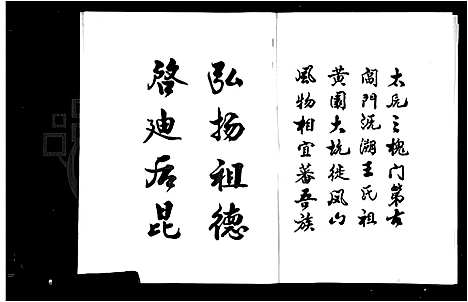 太原三槐门第古
阎门溯湖王氏祖
黄园大坑徙凤山
风物相宜蕃吾族
弘扬祖德
启迪后昆